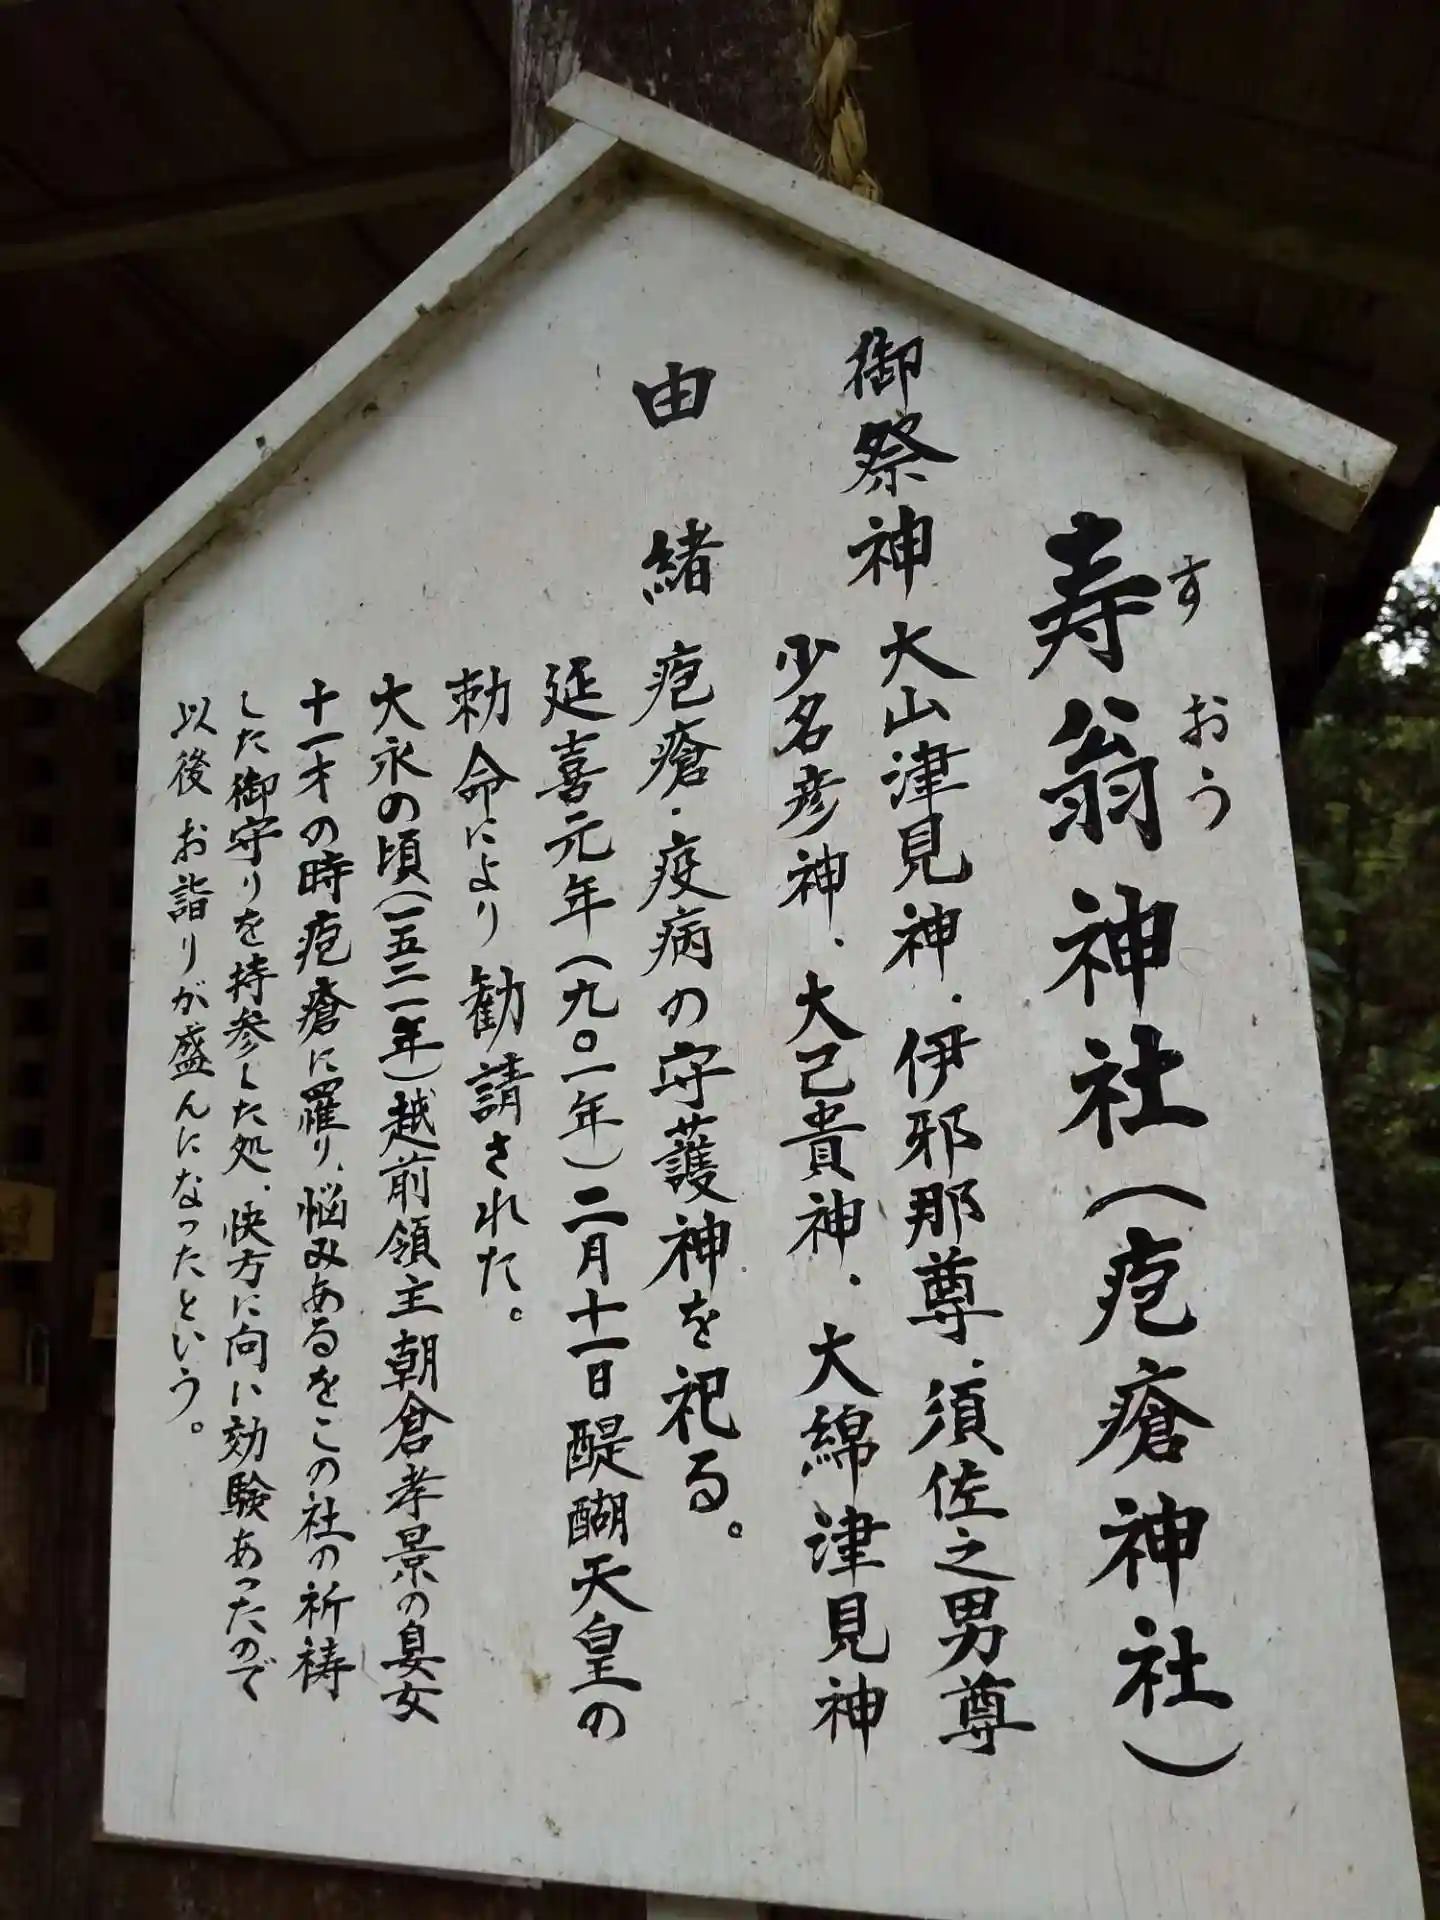 寿翁神社(疱瘡神社)
すおう
御祭神 大山津見神、伊邪那尊、須佐之男尊
少名彦神、大己貴神、大綿津見神
由緒 疱瘡・疫病の守護神を祀る。
延喜元年(九〇一年)二月十一日醍醐天皇の
勅命により勧請された。
大永の頃(一五二一年)越前領主朝倉孝景の息女
十一才の時疱瘡に罹り、悩みあるをこの社の祈祷
した御守りを持参した処、快方に向い効験あったので
以後お詣りが盛んになったという。